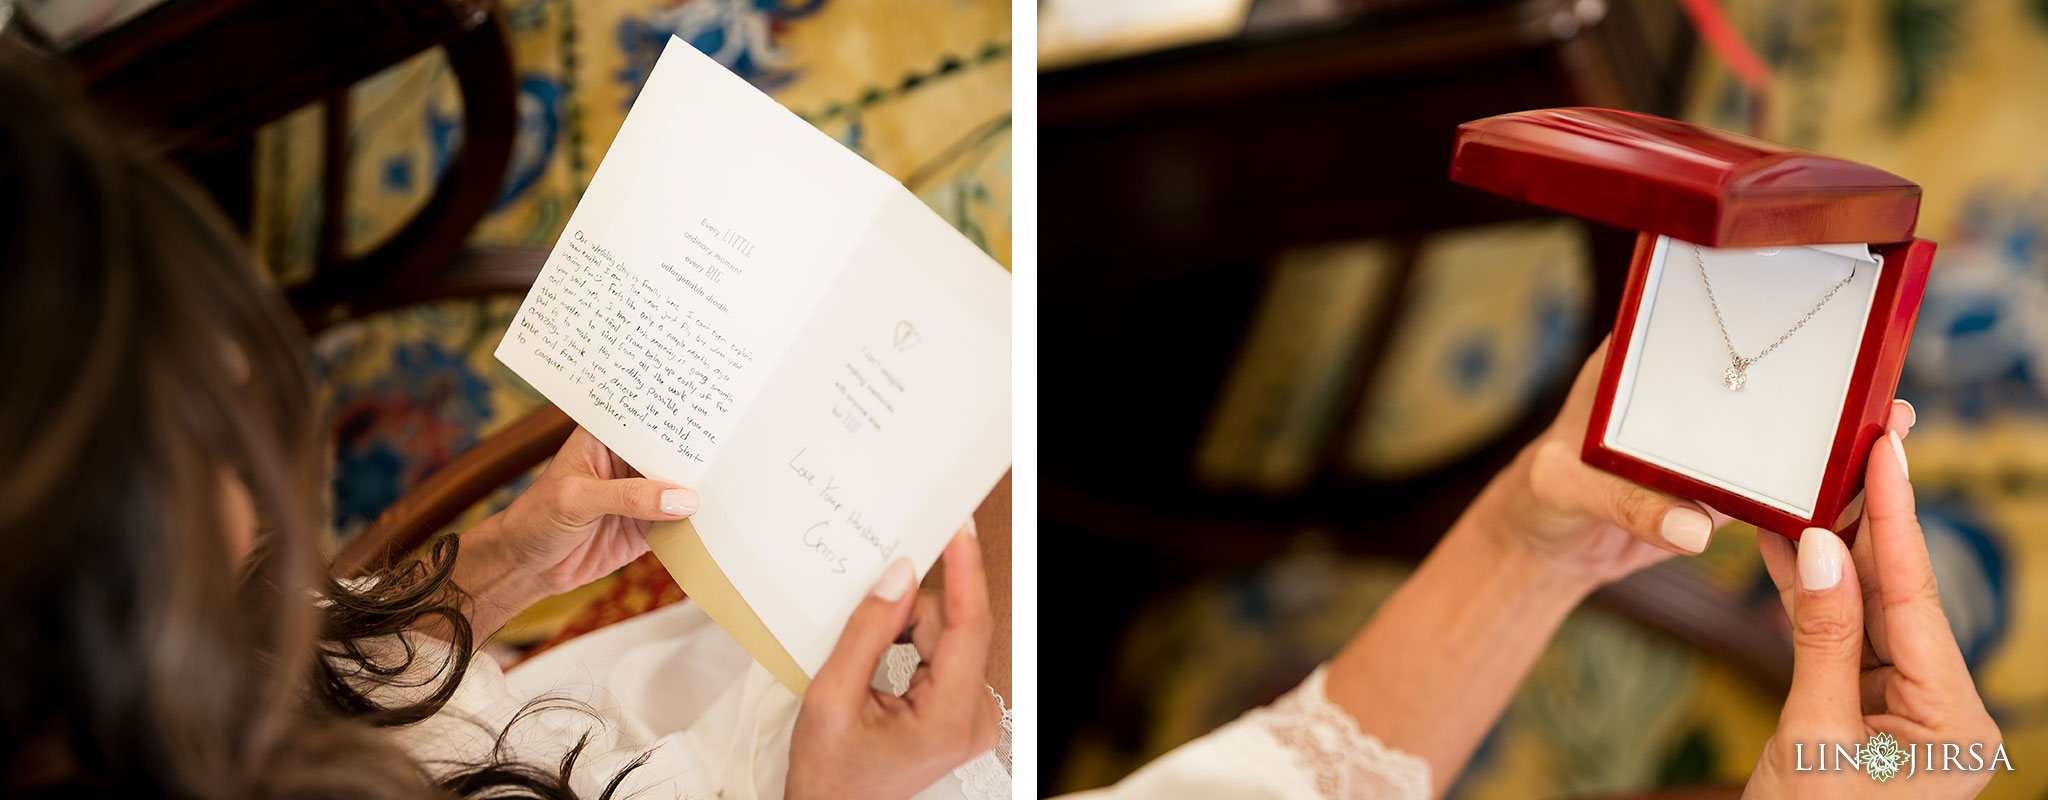 Every LITTLE
ordinary moment...
every BIG
unforgettable dream...
Our wedding day is finally here. I cant even explain
how excited I am. The years just fly by when your
having fun :). Feels like only a couple months ago
you said yes. I hope this morning is going smooth
and your not to tired from being up early or for
that matter to tired from all the work you
put in to make this wedding possible. You are
amazing. I think you deserve the world
babe and from this day forward we can start
to conquer it together.
I can't imagine
making memories
with anyone else
but YOU
Love Your Husband
Chris
LIN & JIRSA